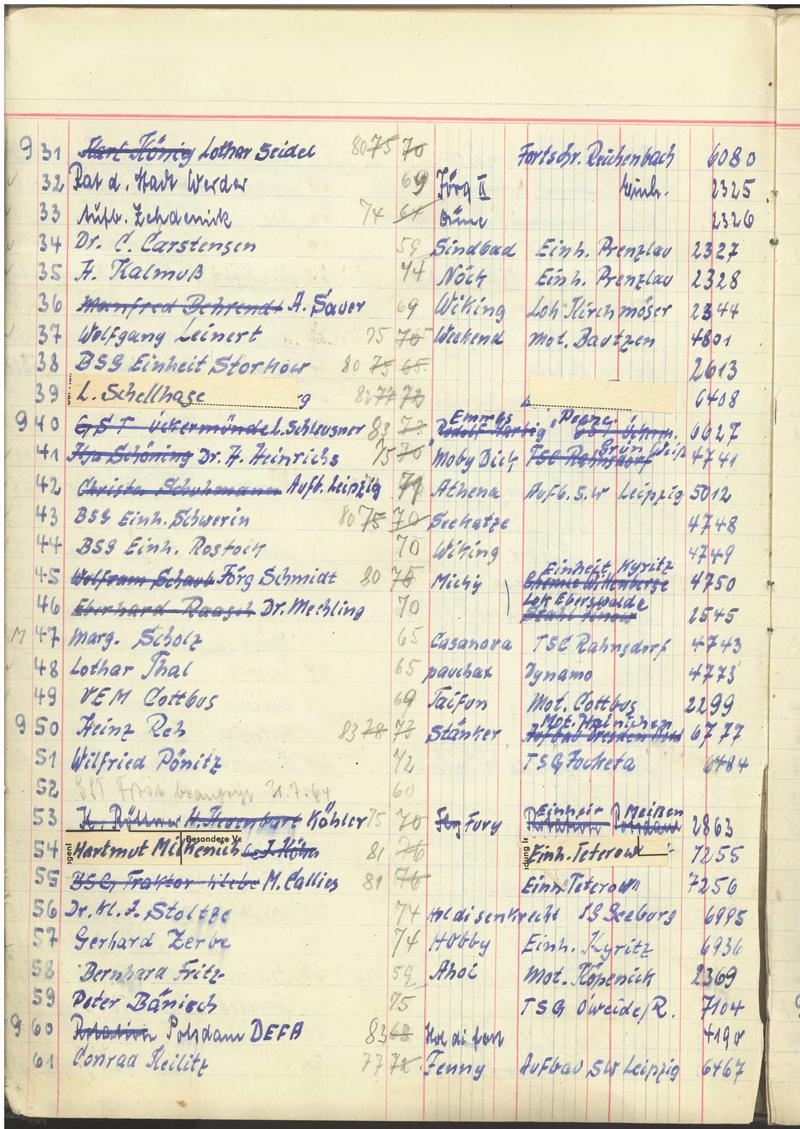 9 31 Karl König Lothar Seidel 80 75 70 Fortschr. Reichenbach 6080
32 Rat d. Stadt Werder 69 Jörg II Einh. 2325
33 Aufb. Zehdenick 74 2326
34 Dr. C. Carstensen 59 Sindbad Einh. Prenzlau 2327
35 H. Kalmuß 74 Nöck Einh. Prenzlau 2328
36 Manfred Behrendt A. Sauer 69 Wiking Lok Kirchmöser 2344
37 Wolfgang Leinert 75 70 Weekend Mot. Bautzen 4801
38 BSG Einheit Storkow 80 75 65 2613
39 L. Schellhase g 82 77 73 6408
Emmes Prenz.
9 40 GST Ückermünde L. Schleusner 83 73 Rudolf Hartig GST Ückm. 6627
Grün Weiß
41 Ilse Schöning Dr. H. Heinrichs 75 70 Moby Dick TSC Rahnsdorf 4741
42 Christa Schuhmann Aufb. Leipzig 71 Athena Aufb. S.W Leipzig 5012
43 BSG Einh. Schwerin 80 75 70 Seekatze 4748
44 BSG Einh. Rostock 70 Wiking 4749
Einheit Kyritz
45 Wolfram Schaub Jörg Schmidt 80 76 Michy Chemie Wittenberge 4750
Lok Eberswalde
46 Eberhard Raasch Dr. Mechling 70 Stahl Finow 2545
M 47 Marg. Scholz 65 Casanora TSC Rahnsdorf 4743
48 Lothar Thal 65 pauchax Dynamo 4773
49 VEM Cottbus 69 Taifun Mot. Cottbus 2299
Mot. Hainichen
9 50 Heinz Reh 83 78 73 Stänker Aufbau Dresden 6777
51 Wilfried Pönitz 72 TSG Jocketa 6484
52 GST beantragt 31.7.64 60
Einheit Meißen
53 K. Röllner Köhler 75 70 Fury Rotation Potsdam 2863
Besondere Ve
54 Hartmut Milkenich 81 76 Einh. Teterow 7255
55 BSG Traktor M. Callies 81 76 Einh Teterow 7256
56 Dr. Kl. J. Stoltze 74 Hol di senkrecht SG Seeburg 6995
57 Gerhard Zerbe 74 Hobby Einh. Kyritz 6936
58 Bernhard Fritz 59 Ahoi Mot. Köpenick 2369
59 Peter Bänisch 75 TSG O'weide/R. 7104
9 60 Rotation Potsdam DEFA 83 68 Hol di fast 4190
61 Conrad Keilitz 77 72 Fenny Aufbau SW Leipzig 6467